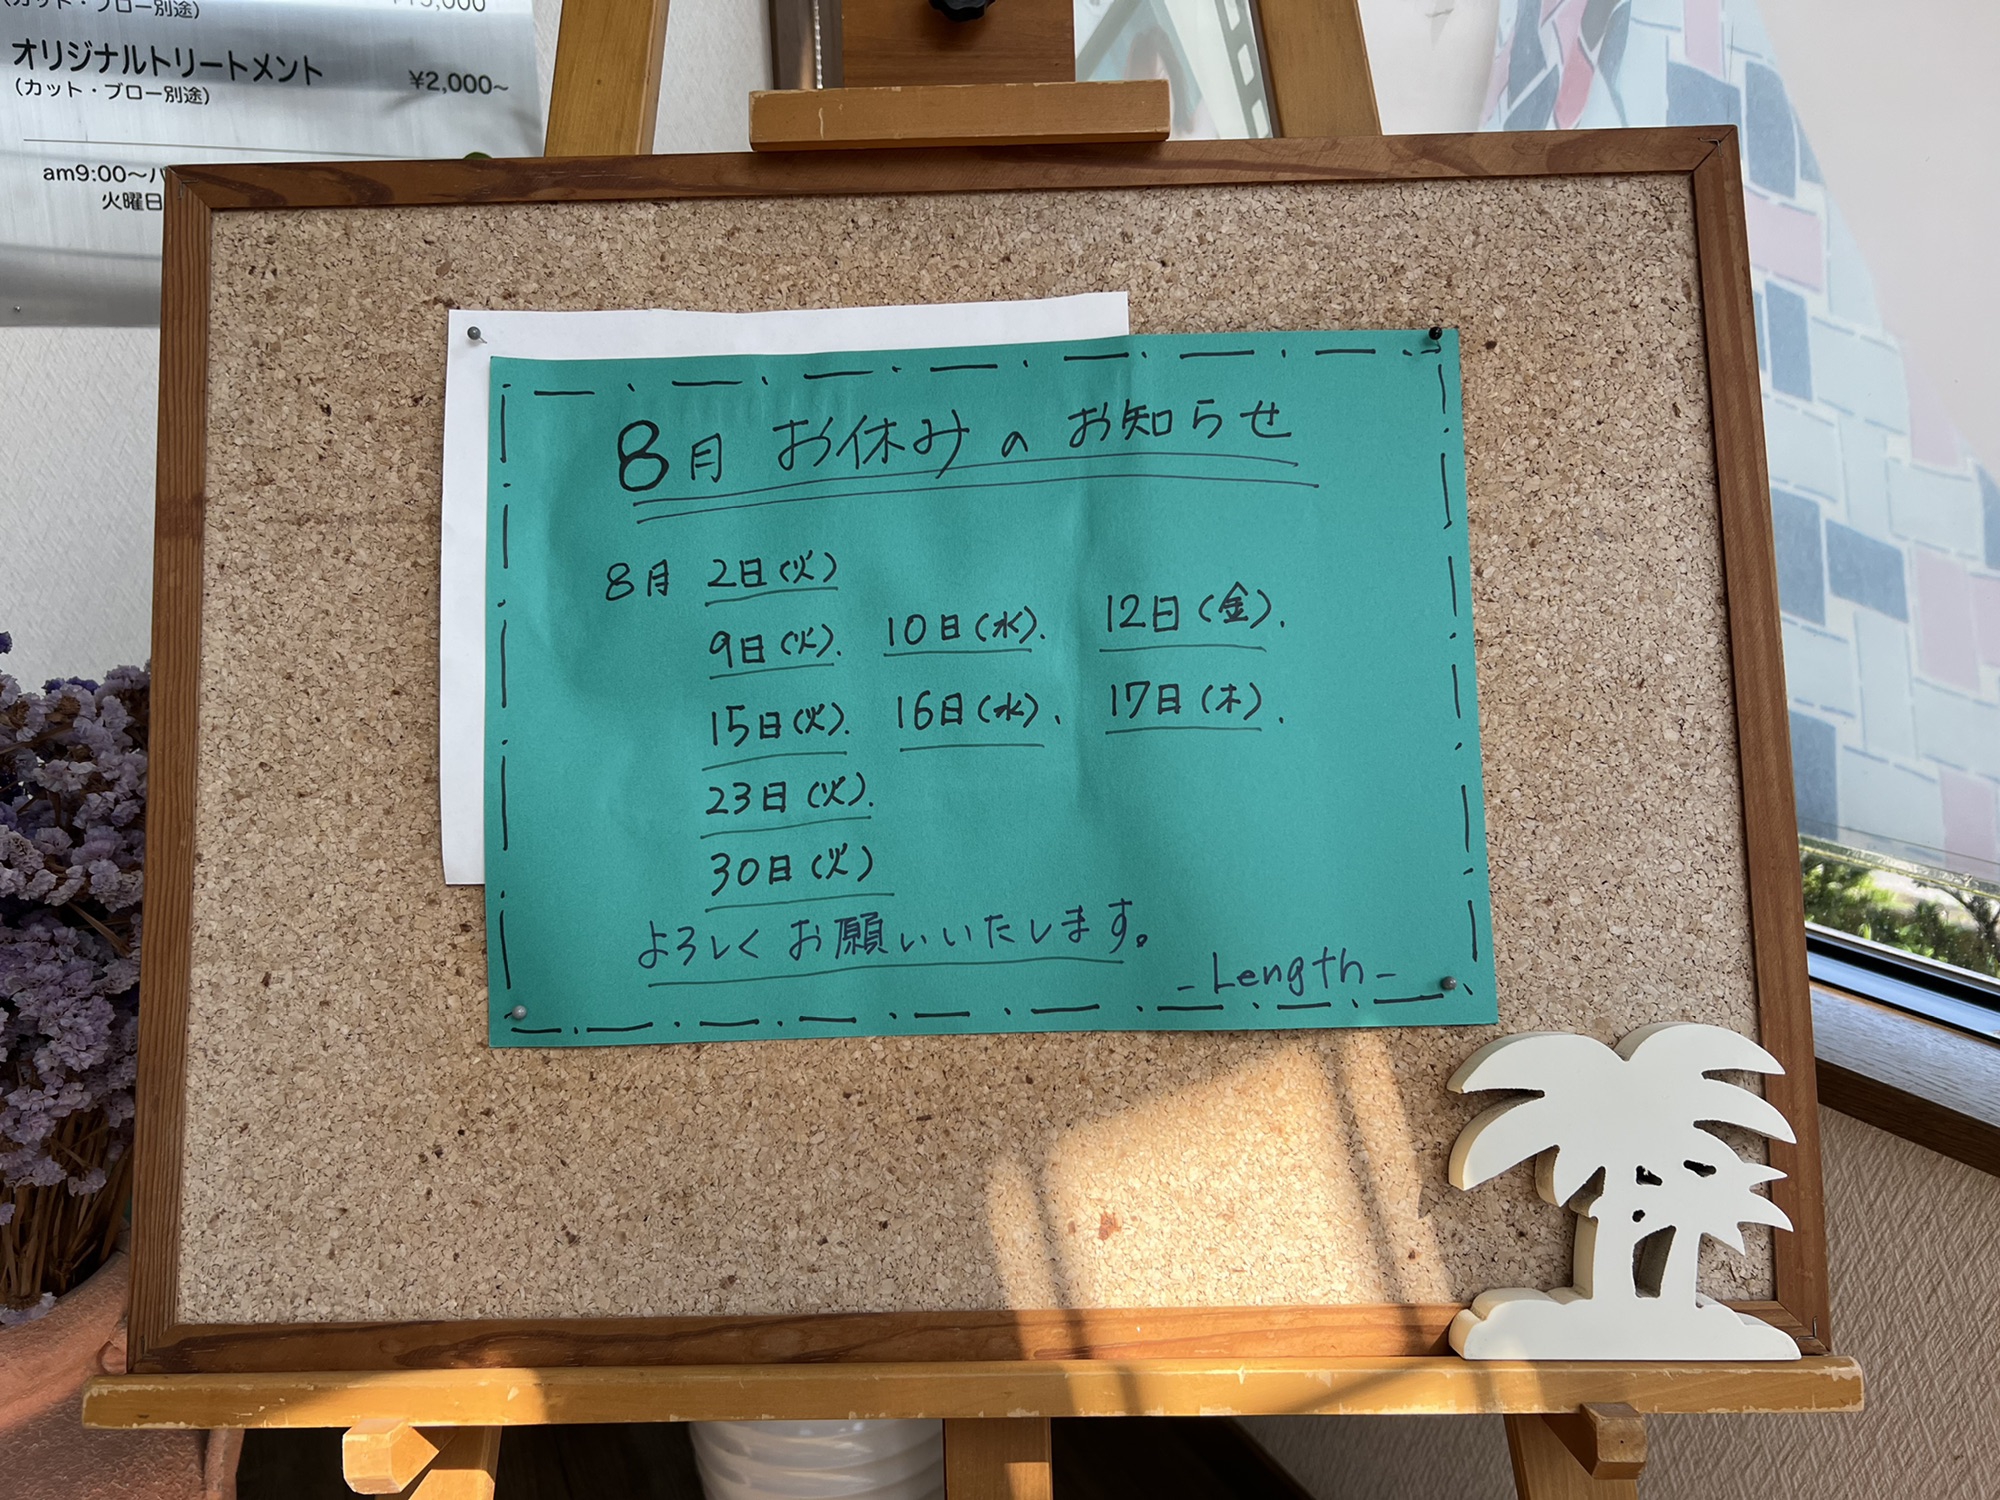 (カット・ブロー別途)
オリジナルトリートメント ¥2,000~
(カット・ブロー別途)
am9:00~
火曜日
8月 お休みの お知らせ
8月 2日(火)
9日(火). 10日(水). 12日(金).
15日(火). 16日(水). 17日(木).
23日(火).
30日(火)
よろしくお願いいたします。
- Length -